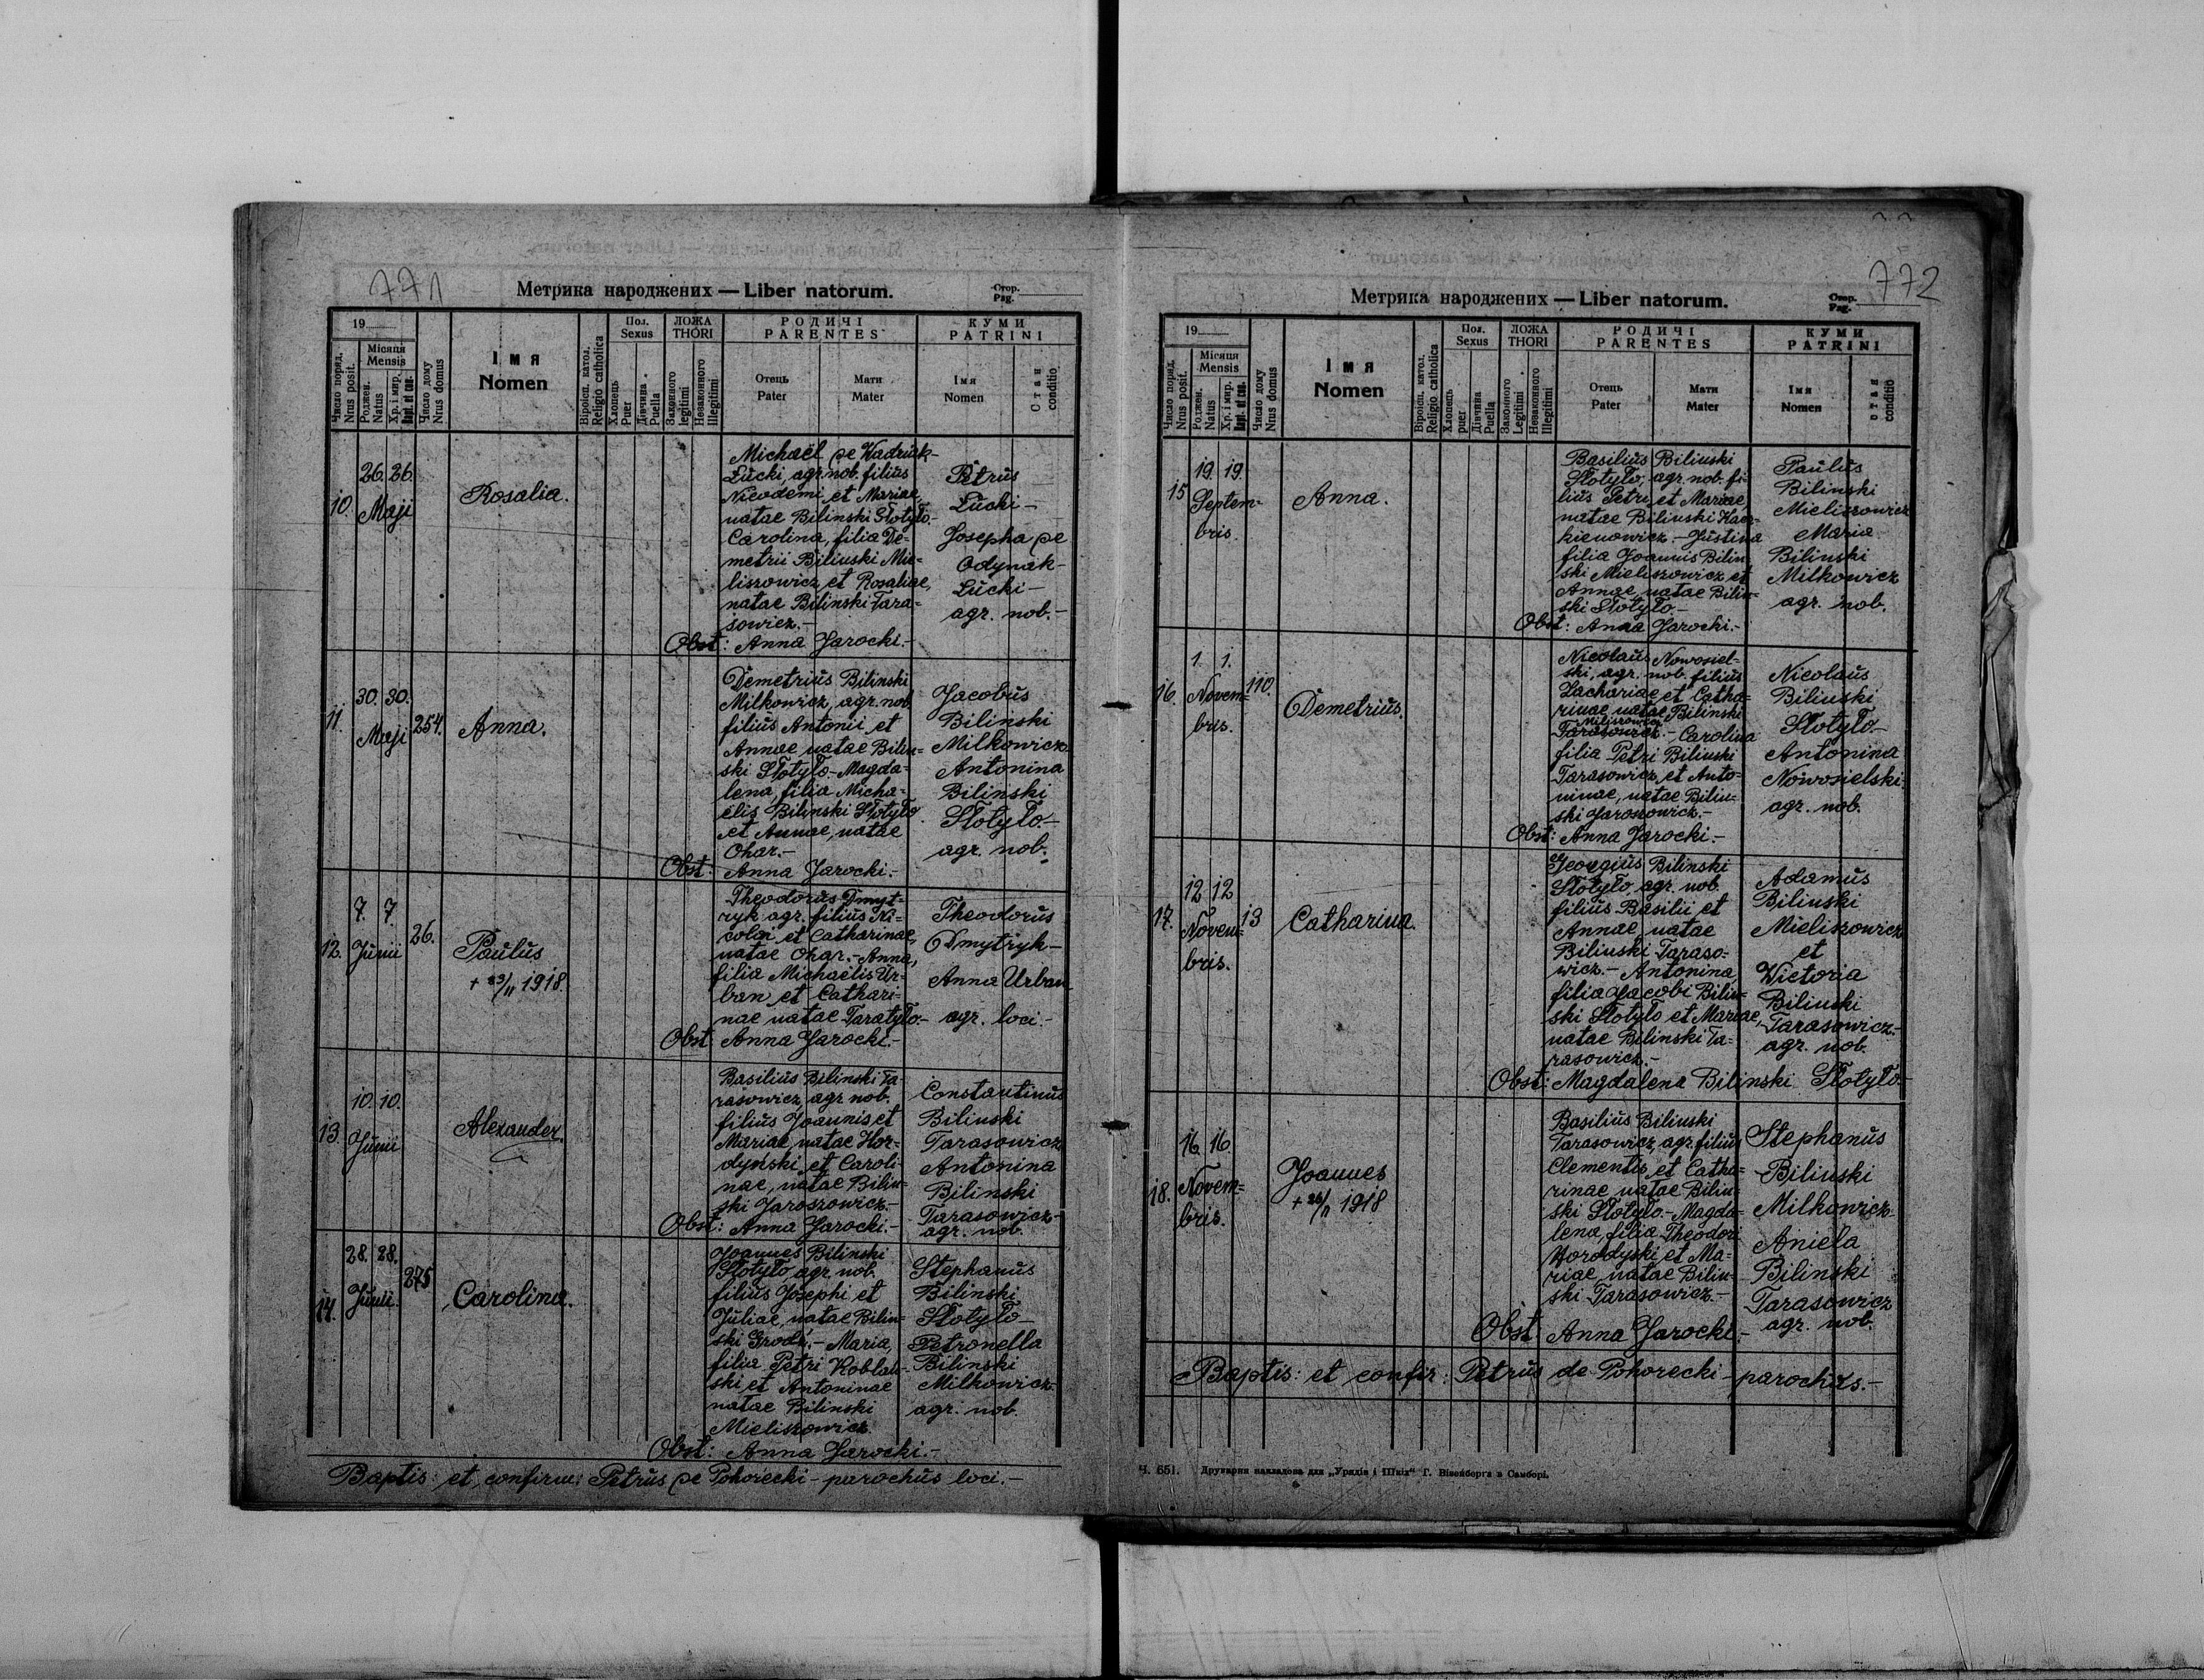 771
Метрика народжених — Liber natorum.
Стор.
Pag.
19
Число поряд.
Nrus posit.
Місяця
Mensis
Роджен.
Natus
Хр. і мир.
Bapt. et con.
Число дому
Nrus domus
Імя
Nomen
Віроісп. катол.
Religio catholica
Пол.
Sexus
Хлопець
Puer
Дівчина
Puella
ЛОЖА
THORI
Законного
legitimi
Незаконного
Illegitimi
РОДИЧІ
PARENTES
Отець
Pater
Мати
Mater
КУМИ
PATRINI
Імя
Nomen
Стан
conditio
10.
26. 26.
Maji
Rosalia.
Michaël de
Łucki, agr. nob. filius
Nicodemi et Mariae,
natae Bilinski Słotyło.-
Carolina, filia De=
metrii Bilinski Mie=
liszowicz et Rosaliae,
natae Bilinski Tara=
sowicz.-
Obst: Anna Jarocki.-
Petrus
Łucki-
Josepha de
Odynak-
Łucki-
agr. nob.-
11.
30. 30.
Maji
254.
Anna.
Demetrius Bilinski
Milkowicz, agr. nob.
filius Antonii et
Annae natae Bilin=
ski Słotyło.- Magda=
lena, filia Micha=
elis Bilinski Słotyło
et Annae, natae
Ohar.-
Obst: Anna Jarocki.-
Jacobus
Bilinski
Milkowicz
Antonina
Bilinski
Słotyło.-
agr. nob.-
12.
7. 7.
Junii
26.
Paulus
+ 23/11 1918.
Theodorus Dmyt=
ryk agr. filius Ni=
colai et Catharinae,
natae Ohar.- Anna,
filia Michaelis Ur=
ban et Cathari=
nae natae Taratyło.-
Obst: Anna Jarocki.-
Theodorus
Dmytryk-
Anna Urban
agr. loci.-
13.
10. 10.
Junii
Alexander.
Basilius Bilinski Ta=
rasowicz, agr. nob.
filius Joannis et
Mariae natae Hor=
dyński et Caroli=
nae, natae Bilin=
ski Jaroszowicz.-
Obst: Anna Jarocki.-
Constantinus
Bilinski
Tarasowicz
Antonina
Bilinski
Tarasowicz-
agr. nob.
14.
28. 28.
Junii.
275
Carolina.
Joannes Bilinski
Słotyło, agr. nob.
filius Josephi et
Juliae, natae Bilin=
ski Grodź.- Maria,
filia Petri Koblań=
ski et Antoninae
natae Bilinski
Mieliszowicz.
Obst: Anna Jarocki.-
Stephanus
Bilinski
Słotyło-
Petronella
Bilinski
Milkowicz.
agr. nob.
Baptis: et confirm: Petrus de Pohorecki - parochus loci.-
772
Метрика народжених — Liber natorum.
Стор.
Pag.
19
Число поряд.
Nrus posit.
Місяця
Mensis
Роджен.
Natus
Хр. і мир.
Bapt. et con.
Число дому
Nrus domus
Імя
Nomen
Віроісп. катол.
Religio catholica
Пол.
Sexus
Хлопець
puer
Дівчина
Puella
ЛОЖА
THORI
Законного
Legitimi
Незаконного
Illegitimi
РОДИЧІ
PARENTES
Отець
Pater
Мати
Mater
КУМИ
PATRINI
Імя
Nomen
стан
conditio
15
19. 19.
Septem=
bris
Anna.
Basilius Bilinski
Słotyło, agr. nob. fi=
lius Petri et Mariae,
natae Bilinski
Justina
filia Joannis Bilin
ski Mieliszowicz et
Annae, natae Bilin=
ski Słotyło.-
Obst: Anna Jarocki.-
Paulus
Bilinski
Mieliszowicz
Maria
Bilinski
Milkowicz
agr. nob.
16.
1. 1.
Novem=
bris.
110.
Demetrius.
Nicolaus Nowosiel=
ski, agr. nob. filius
Zachariae et Catha=
rinae natae Bilinski
Tarasowicz.- Carolina
filia Petri Bilinski
Tarasowicz et Anto=
ninae, natae Bilin=
ski Jaroszowicz.-
Obst: Anna Jarocki.-
Nicolaus
Bilinski
Słotyło.-
Antonina
Nowosielski.
agr. nob.
17.
12 12
Novem=
bris.
13
Catharina.
Georgius Bilinski
Słotyło, agr. nob.
filius Basilii et
Annae, natae
Bilinski Taraso=
wicz.- Antonina
filia Jacobi Bilin=
ski Słotyło et Mariae,
natae Bilinski Ta=
rasowicz.-
Obst: Magdalena Bilinski Słotyło.-
Adamus
Bilinski
Mieliszowicz
et
Wictoria
Bilinski
Tarasowicz.-
agr. nob.
18.
16 16.
Novem=
bris.
Joannes
+ 26/11 1918
Basilius Bilinski
Tarasowicz, agr. filius
Clementis et Catha=
rinae natae Bilin=
ski Słotyło.- Magda=
lena, filia Theodori
Horodyski et Ma=
riae, natae Bilin=
ski Tarasowicz.-
Obst: Anna Jarocki.-
Stephanus
Bilinski
Milkowicz.
Aniela
Bilinski
Tarasowicz
agr. nob.
Baptis: et confir: Petrus de Pohorecki - parochus.-
Ч. 651. Друкарня накладова для „Урядів і Шкіл“ Г. Візенберга в Самборі.